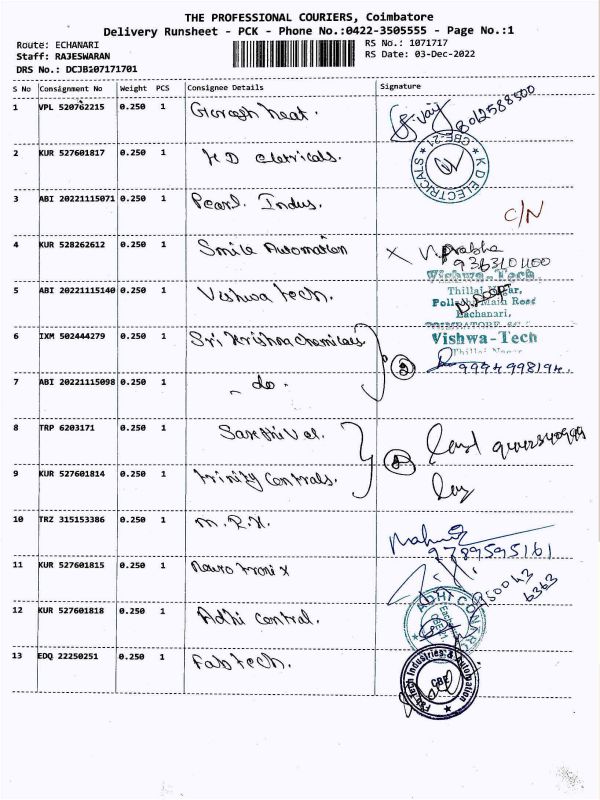 THE PROFESSIONAL COURIERS, Coimbatore
Delivery Runsheet - PCK - Phone No.:0422-3505555 - Page No.:1
Route: ECHANARI
RS No.: 1071717
Staff: RAJESWARAN
RS Date: 03-Dec-2022
DRS No.: DCJB107171701
S No Consignment No Weight PCS Consignee Details Signature
1 VPL 520762215 0.250 1 heat. 8012588500
2 KUR 527601817 0.250 1 K D eletricals. K D ELECTRICALS CBE-21
3 ABI 20221115071 0.250 1 Pearl Indus. C/N
4 KUR 528262612 0.250 1 Smile Automation X N. Prabha
Vishwa-Tech.
5 ABI 20221115140 0.250 1 Vishwa tech. Thillai Nagar,
Pollachi Main Road
Eachanari,
6 IXM 502444279 0.250 1 Sri Krishna chemicals Vishwa-Tech
Thillai Nagar
9994998194.
7 ABI 20221115098 0.250 1 - do -
8 TRP 6203171 0.250 1 Sakthivel.
9 KUR 527601814 0.250 1 trinity Controls.
10 TRZ 315153386 0.250 1 M.R.K.
9789595161
11 KUR 527601815 0.250 1 Nauotronix
12 KUR 527601818 0.250 1 Adhi control. ADHI CONTROL
13 EDQ 22250251 0.250 1 Fabtech. Fab Tech Industries & Automation CBE